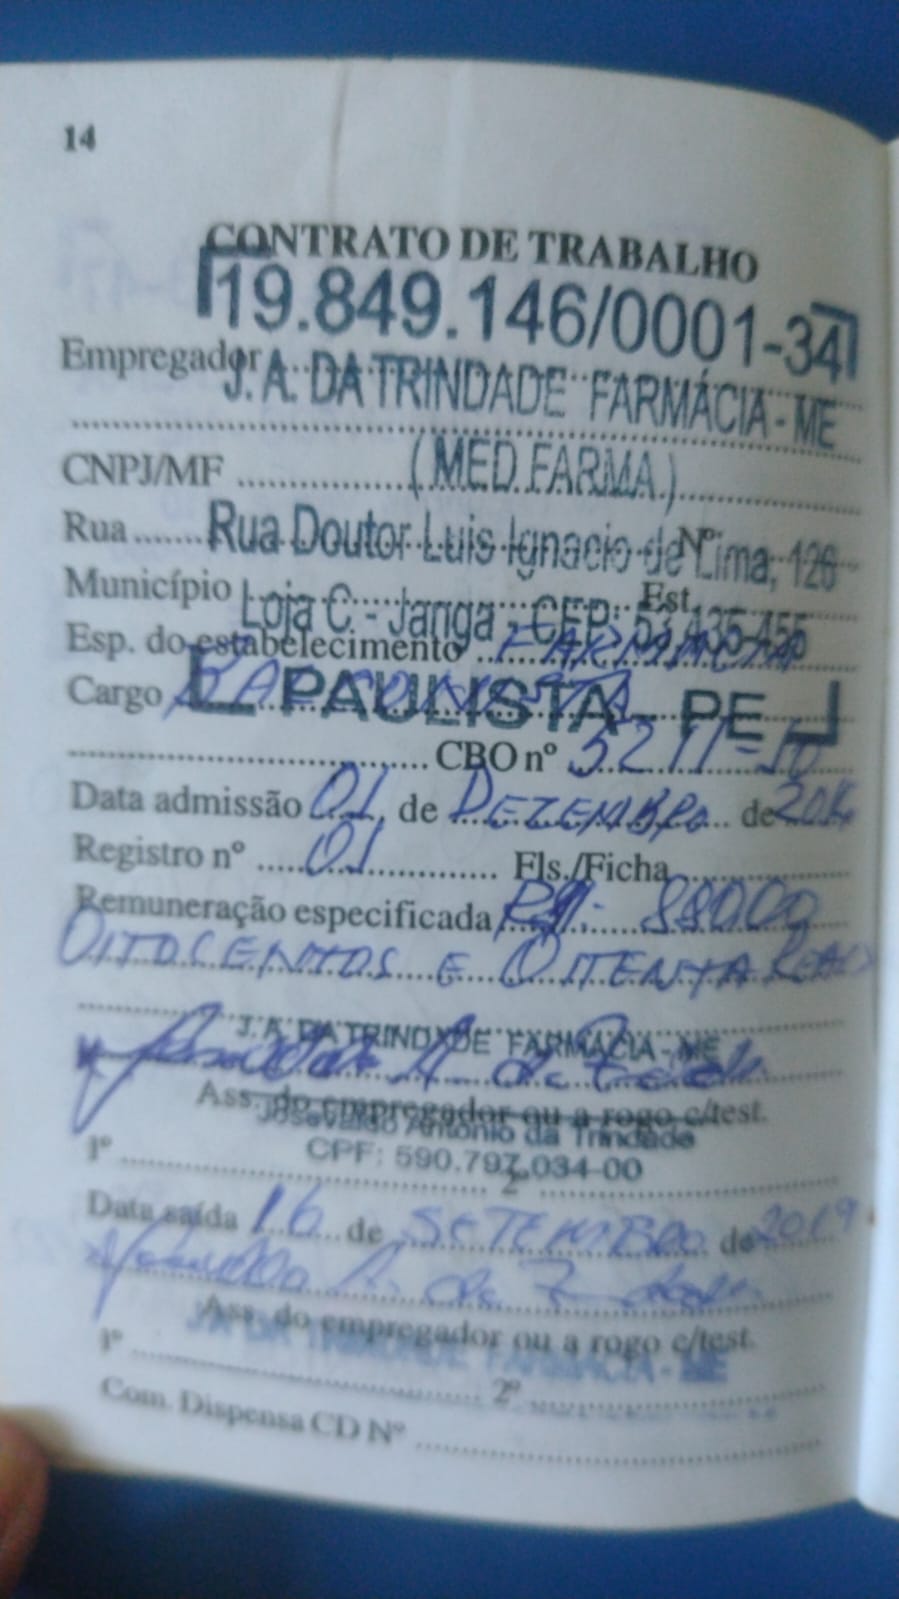 14
CONTRATO DE TRABALHO
19.849.146/0001-34
Empregador
J. A. DA TRINDADE FARMÁCIA - ME
CNPJ/MF (MED FARMA)
Rua Rua Doutor Luis Ignacio de Lima, 126 Nº
Município Loja C. - Janga - CEP: 53.435-455 Est.
Esp. do estabelecimento FARMÁCIA
Cargo BALCONISTA
PAULISTA - PE
CBO nº 5211-30
Data admissão 01 de DEZEMBRO de
Registro nº 01 Fls./Ficha
Remuneração especificada R$: 880,00
OITOCENTOS E OITENTA REAIS
J. A. DA TRINDADE FARMÁCIA - ME
Ass. do empregador ou a rogo c/test.
Josevaldo Antônio da Trindade
CPF: 590.797.034-00
1º 2º
Data saída 16 de SETEMBRO de 2019
Ass. do empregador ou a rogo c/test.
J A DA TRINDADE FARMACIA - ME
1º 2º
Com. Dispensa CD Nº